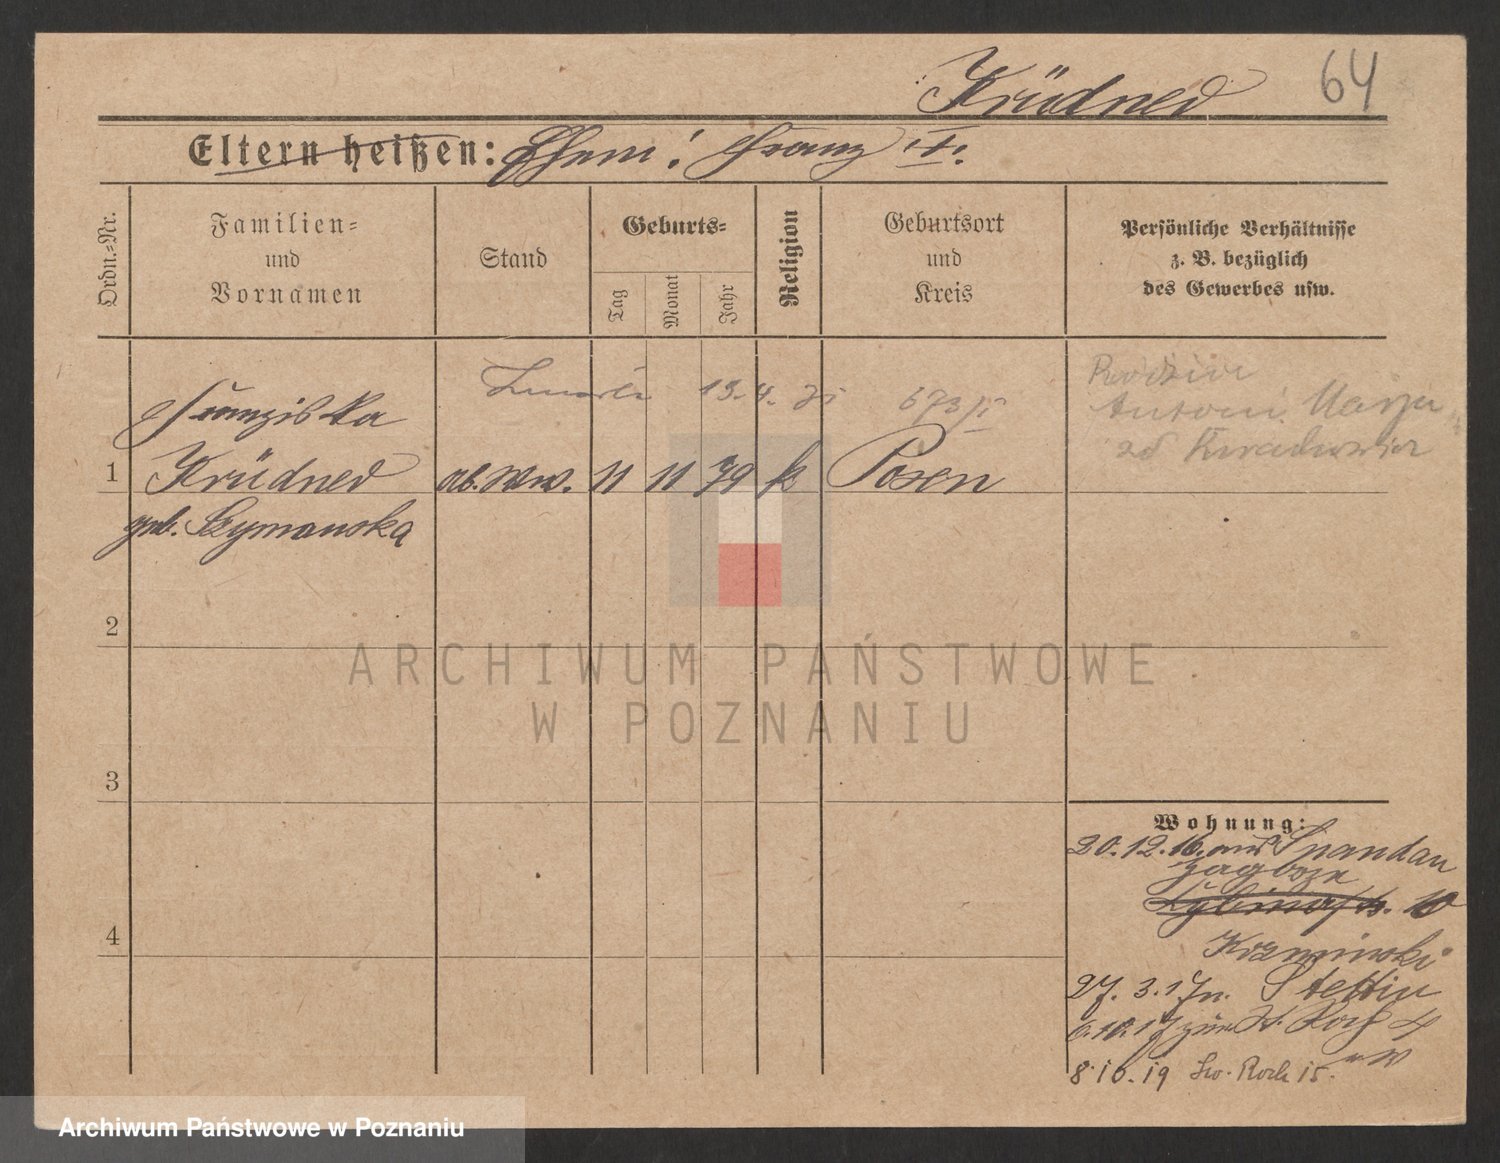 Krüdner
64
Eltern heißen: Ehem: Franz †.
Ordn.-Nr.
Familien-
und
Vornamen
Stand
Geburts-
Tag
Monat
Jahr
Religion
Geburtsort
und
Kreis
Persönliche Verhältnisse
z. B. bezüglich
des Gewerbes usw.
Zmarła 19.4.
Rodzice
Antoni Marja
Franziska
1 Krüdner ab. Ww. 11 11 79 k Posen
geb. Szymanska
2
3
4
Wohnung:
20.12.16. aus Spandau
10
27.3.17 n. Stettin
6.10.17 zur. St. Roch 4
8.10.19 Św. Roch 15.
ARCHIWUM PAŃSTWOWE
W POZNANIU
Archiwum Państwowe w Poznaniu